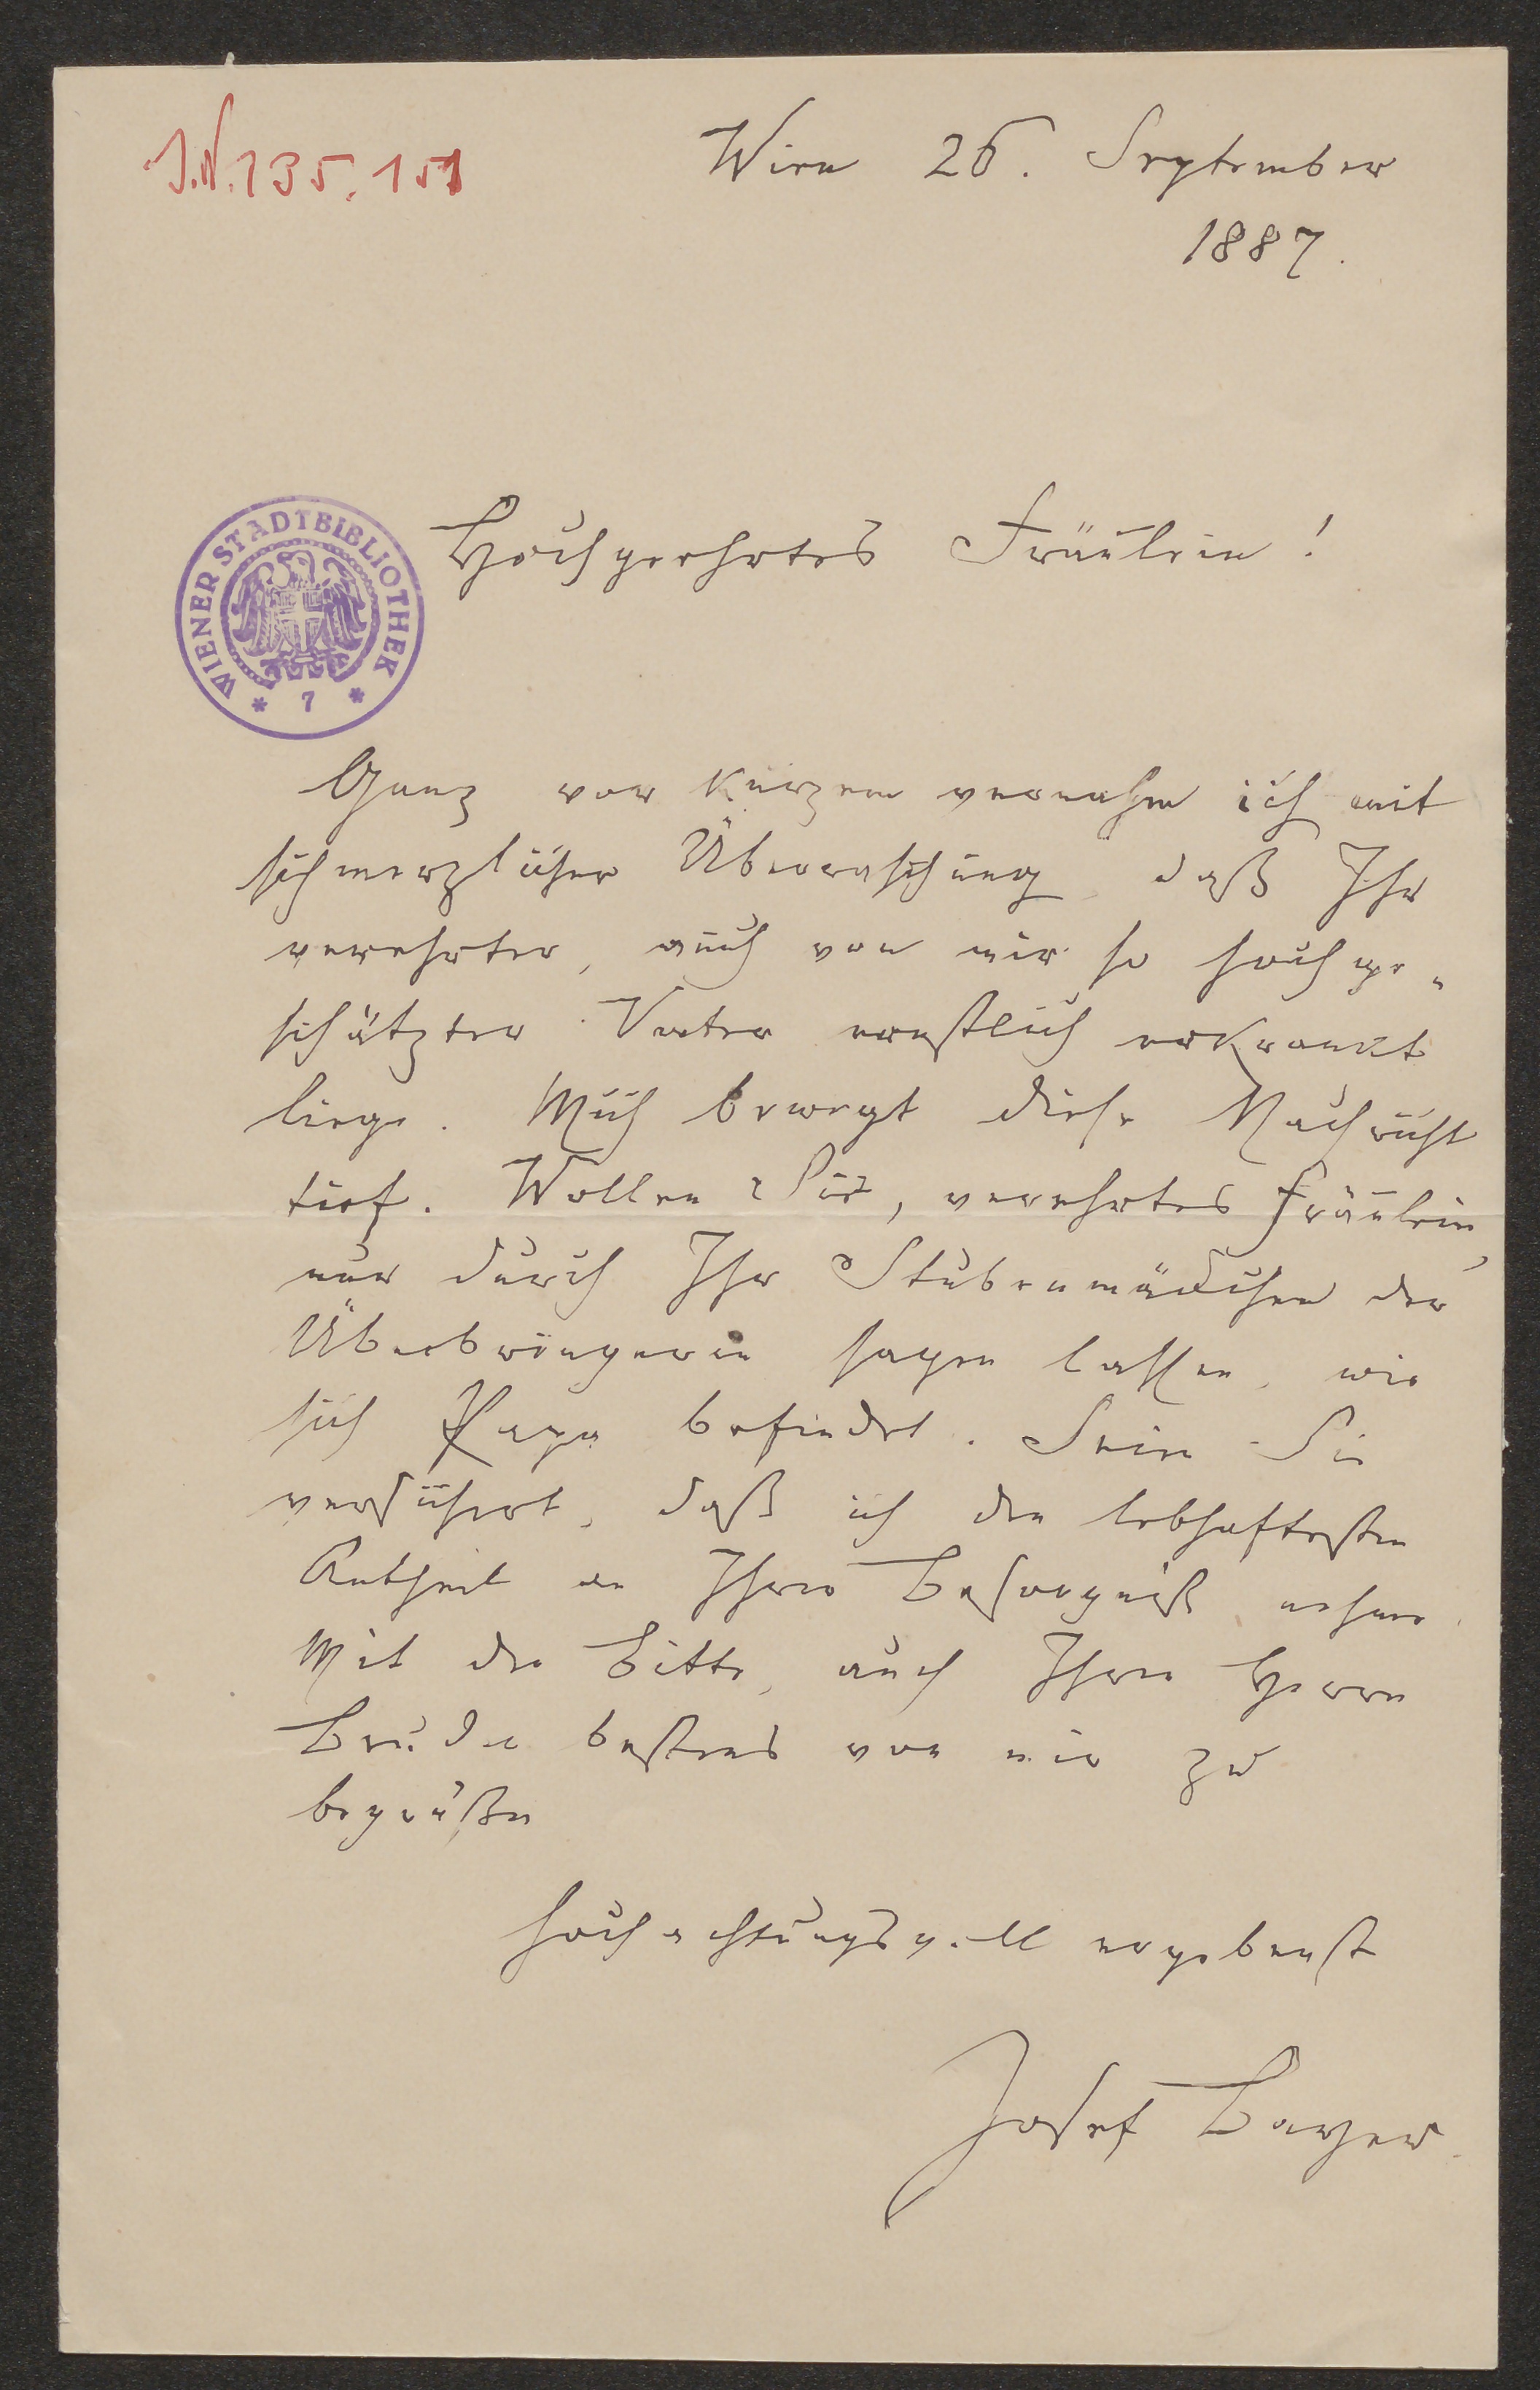 J.N. 135.151
Wien 26. September
1887.
WIENER STADTBIBLIOTHEK
* 7 *
Hochgeehrtes Fräulein!
Ganz vor Kurzem vernahm ich mit
schmerzlicher Überraschung daß Ihr
verehrter, auch von mir so hochge-
schätzter Vater ernstlich erkrankt
liege. Mich bewegt diese Nachricht
tief. Wollen Sie, verehrtes Fräulein,
nur durch Ihr Stubenmädchen der
Überbringerin sagen lassen, wie
sich Papa befindet. Seien Sie
versichert, daß ich den lebhaftesten
Antheil an Ihrer Besorgniß nehme.
Mit der Bitte, auch Ihren Herrn
Bruder bestens von mir zu
begrüßen
hochachtungsvoll ergebenst
Josef Bayer.